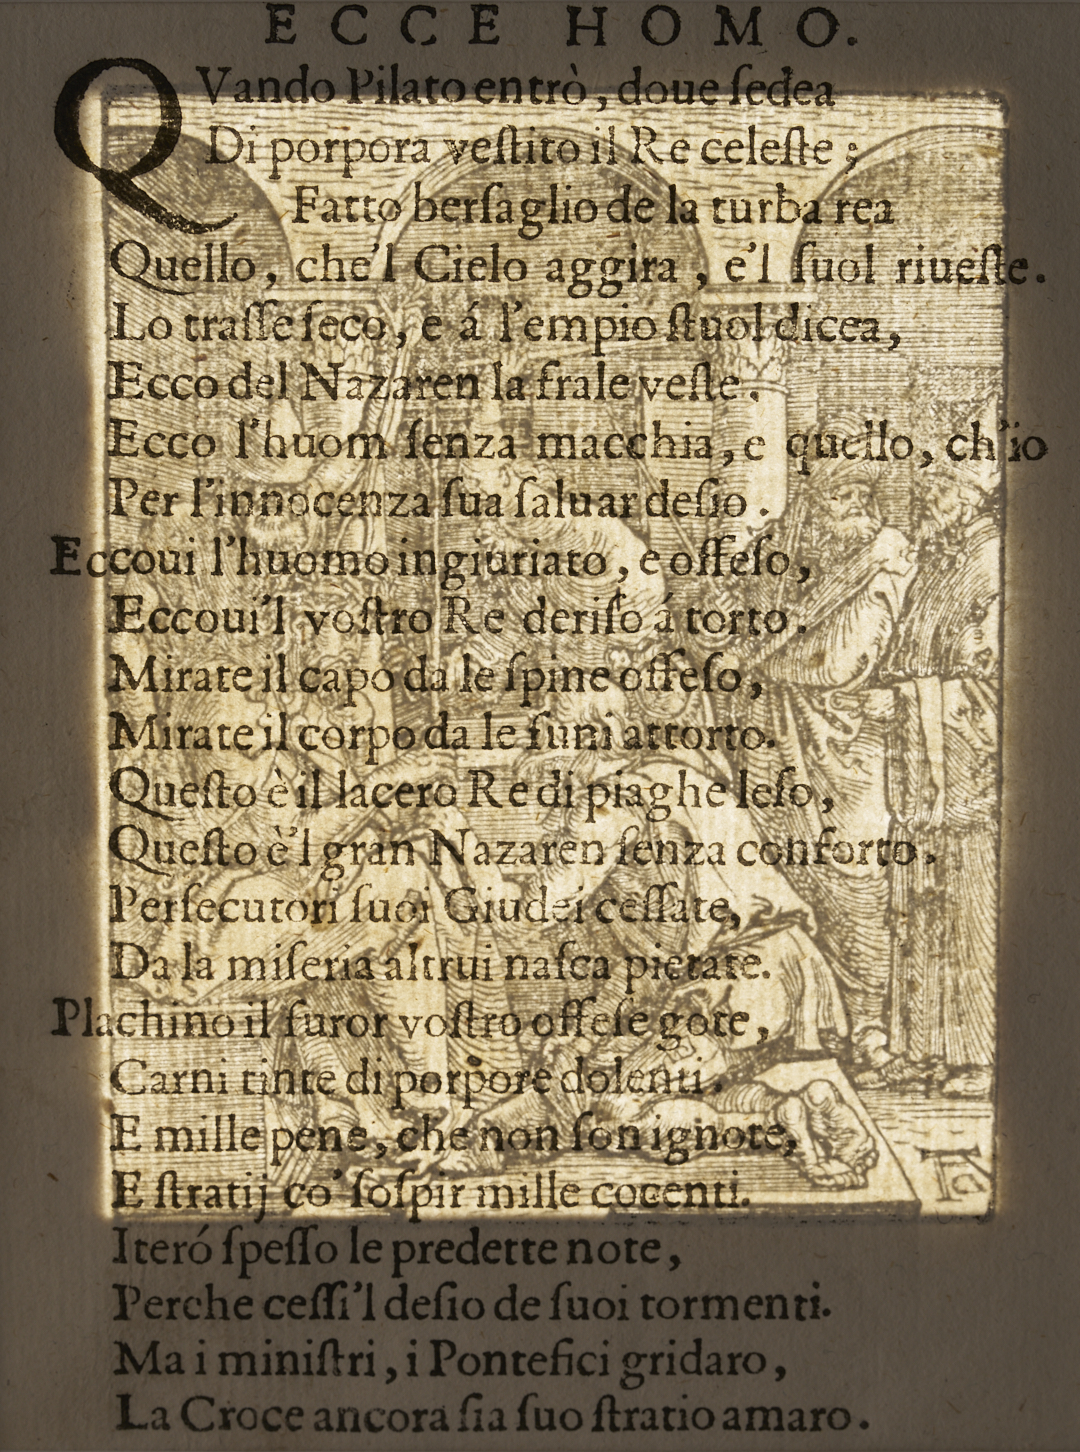 ECCE HOMO.
QVando Pilato entrò, doue ſedea
Di porpora veſtito il Re celeſte;
Fatto berſaglio de la turba rea
Quello, che'l Cielo aggira, e'l ſuol riueſte.
Lo traſſe ſeco, e á l'empio ſtuol dicea,
Ecco del Nazaren la frale veſte.
Ecco l'huom ſenza macchia, e quello, ch'io
Per l'innocenza ſua ſaluar deſio.
Eccoui l'huomo ingiuriato, e offeſo,
Eccoui'l voſtro Re deriſo á torto.
Mirate il capo da le ſpine offeſo,
Mirate il corpo da le funi attorto.
Queſto è il lacero Re di piaghe leſo,
Queſto è'l gran Nazaren ſenza conforto.
Perſecutori ſuoi Giudei ceſſate,
Da la miſeria altrui naſca pietate.
Plachino il furor voſtro offeſe gote,
Carni tinte di porpore dolenti.
E mille pene, che non ſon ignote,
E ſtratij co' ſoſpir mille cocenti.
Iteró ſpeſſo le predette note,
Perche ceſſi'l deſio de ſuoi tormenti.
Ma i miniſtri, i Pontefici gridaro,
La Croce ancora ſia ſuo ſtratio amaro.